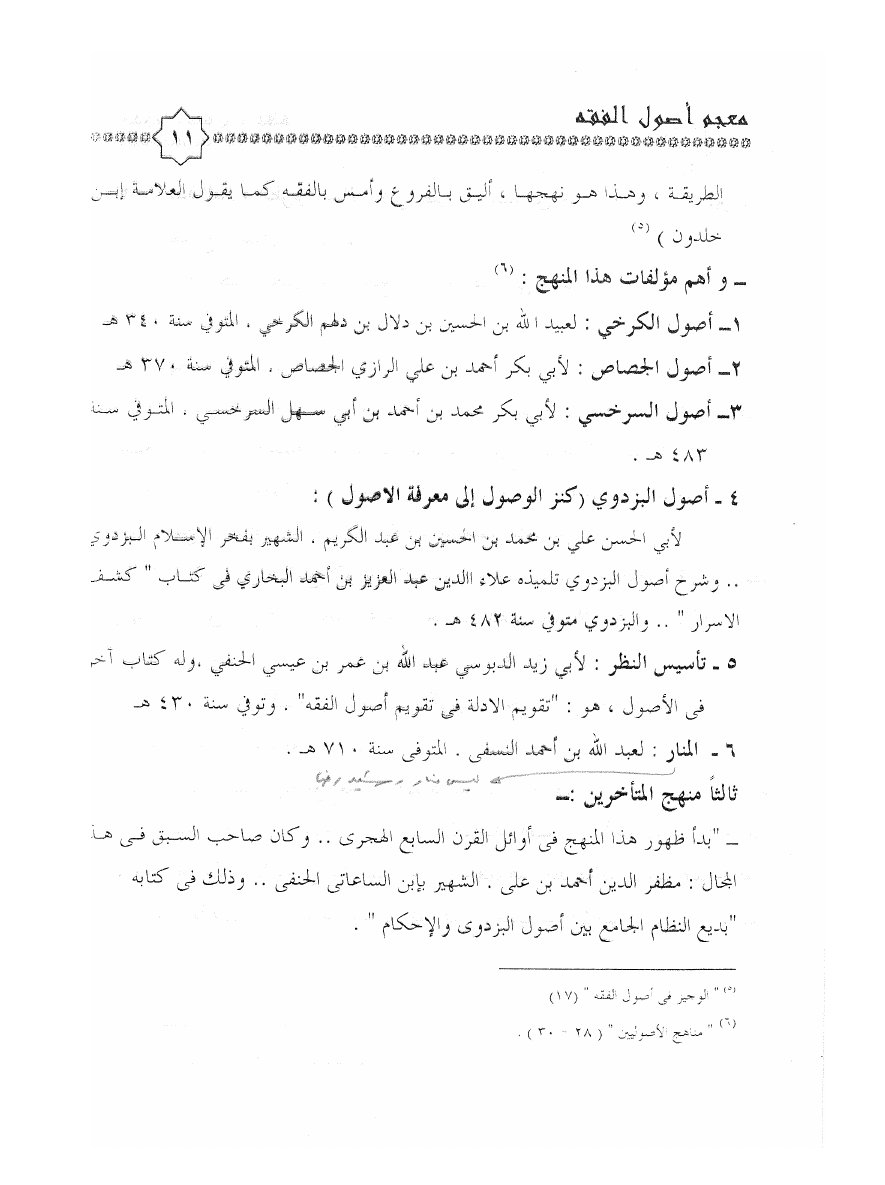 معجم أصول الفقه
١١
الطريقة ، وهذا هو نهجها ، أليق بالفروع وأمس بالفقه كما يقول العلامة إبن
خلدون ) (٥)
ـ و أهم مؤلفات هذا المنهج : (٦)
١ـ أصول الكرخي : لعبيد الله بن الحسين بن دلال بن دلهم الكرخي ، المتوفي سنة ٣٤٠ هـ
٢ـ أصول الجصاص : لأبي بكر أحمد بن علي الرازي الجصاص ، المتوفي سنة ٣٧٠ هـ
٣ـ أصول السرخسي : لأبي بكر محمد بن أحمد بن أبي سهل السرخسي ، المتوفي سنة
٤٨٣ هـ .
٤ ـ أصول البزدوي (كنز الوصول إلى معرفة الاصول ) :
لأبي الحسن علي بن محمد بن الحسين بن عبد الكريم . الشهير بفخر الإسلام البزدوي
.. وشرح أصول البزدوي تلميذه علاء االدين عبد العزيز بن أحمد البخاري فى كتاب " كشف
الاسرار " .. والبزدوي متوفي سنة ٤٨٢ هـ .
٥ ـ تأسيس النظر : لأبي زيد الدبوسي عبد الله بن عمر بن عيسي الحنفي ،وله كتاب آخر
فى الأصول ، هو : "تقويم الادلة فى تقويم أصول الفقه" . وتوفي سنة ٤٣٠ هـ
٦ ـ المنار : لعبد الله بن أحمد النسفى . المتوفى سنة ٧١٠ هـ .
ليس منار
ثالثاً منهج المتأخرين :ـ
ـ "بدأ ظهور هذا المنهج فى أوائل القرن السابع الهجرى .. وكان صاحب السبق فى هذ
المجال : مظفر الدين أحمد بن على . الشهير بإبن الساعاتى الحنفى .. وذلك فى كتابه
"بديع النظام الجامع بين أصول البزدوى والإحكام " .
(٥) " الوجيز فى أصول الفقه " (١٧)
(٦) " مناهج الأصوليين " ( ٢٨ - ٣٠ ) .